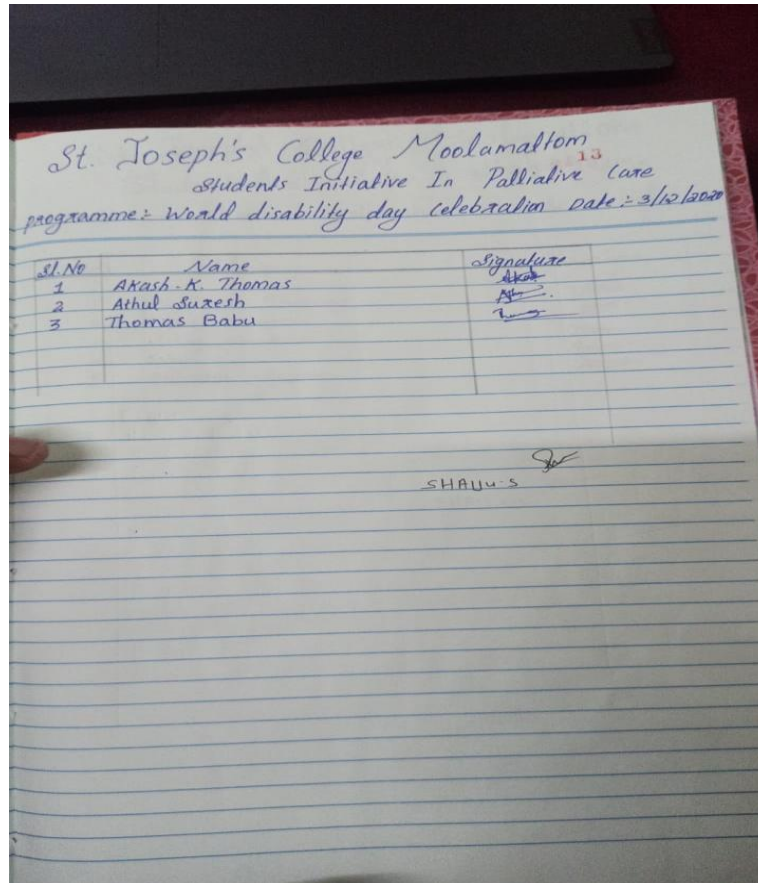 St. Joseph's College Moolamattom
13
Students Initiative In Palliative Care
programme:- World disability day celebration Date:- 3/12/2020
Sl.No Name Signature
1 Akash.K. Thomas Akash
2 Athul Suresh
3 Thomas Babu